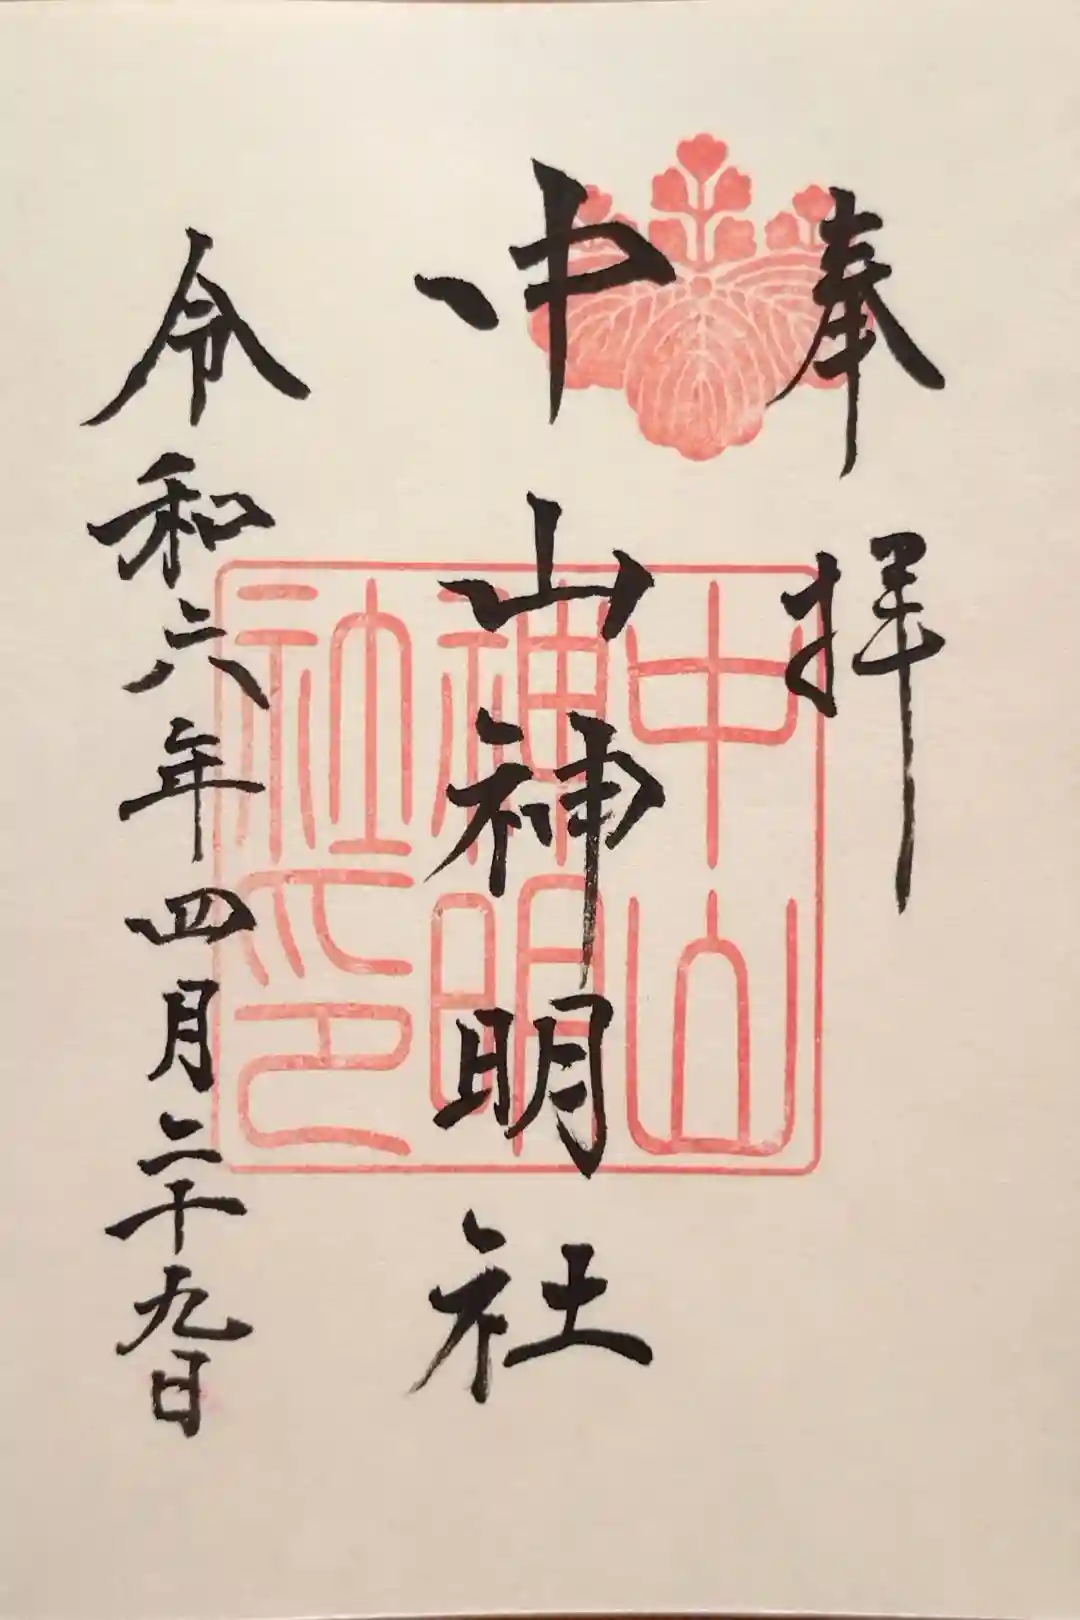 奉拝
中山神明社
令和六年四月二十九日
中山
神明
社之印